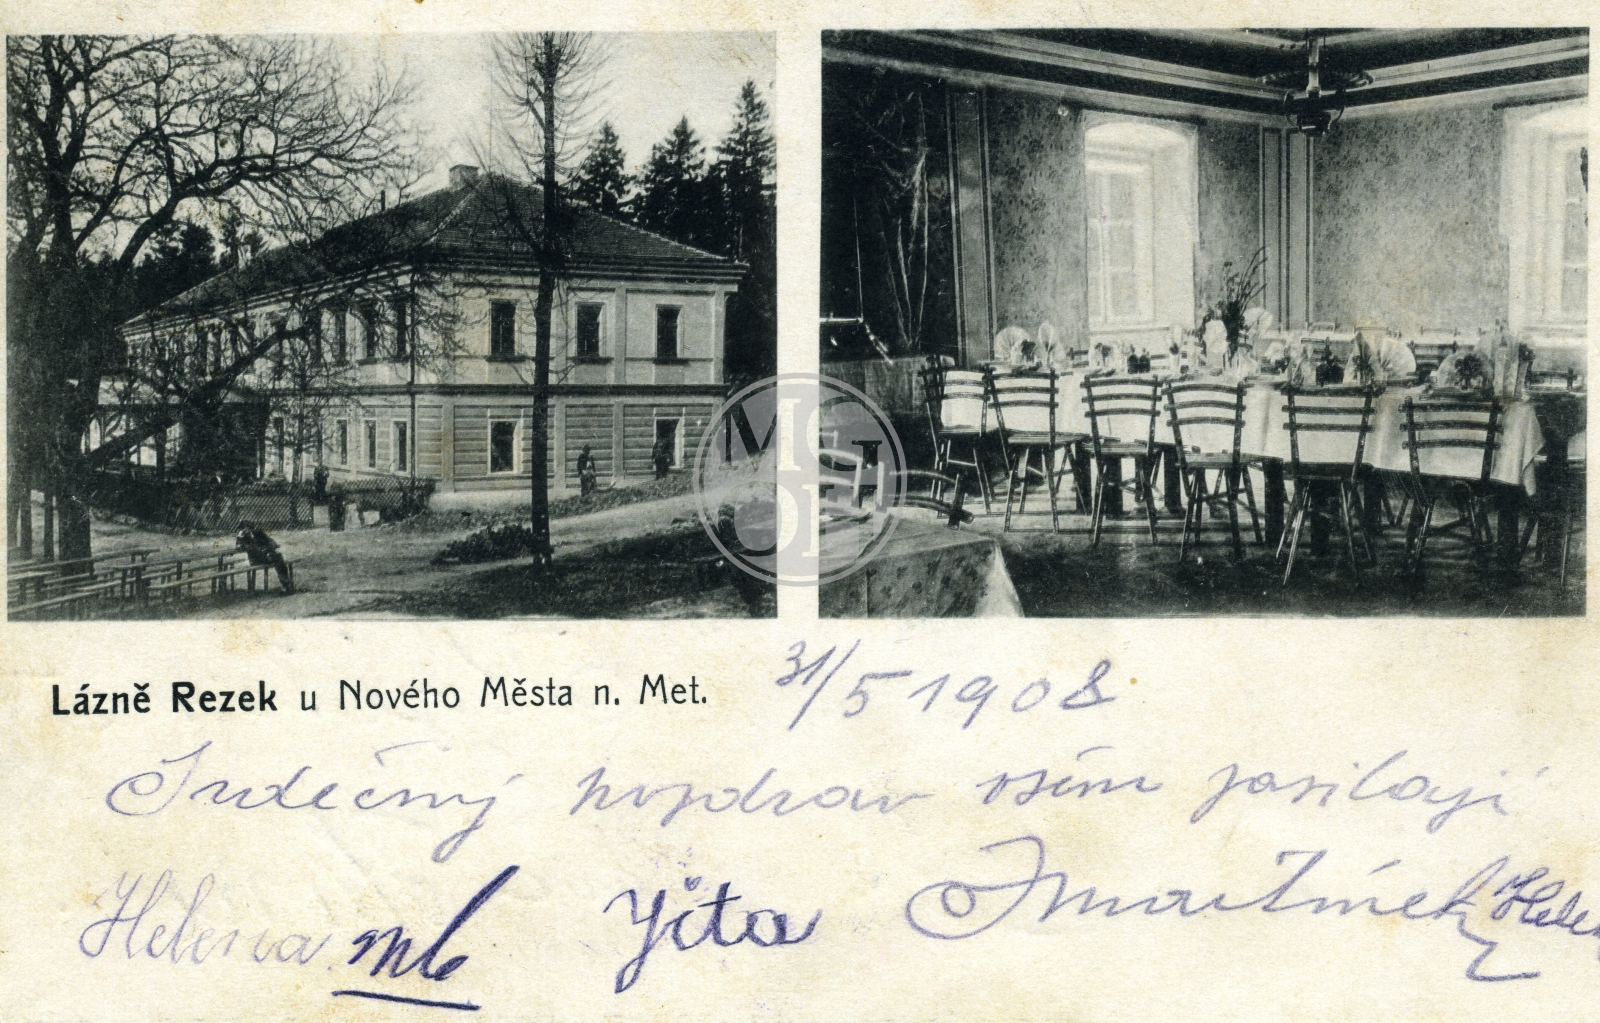 Lázně Rezek u Nového Města n. Met.
31/5 1908
Srdečný pozdrav všem zasílají
Helena Jita